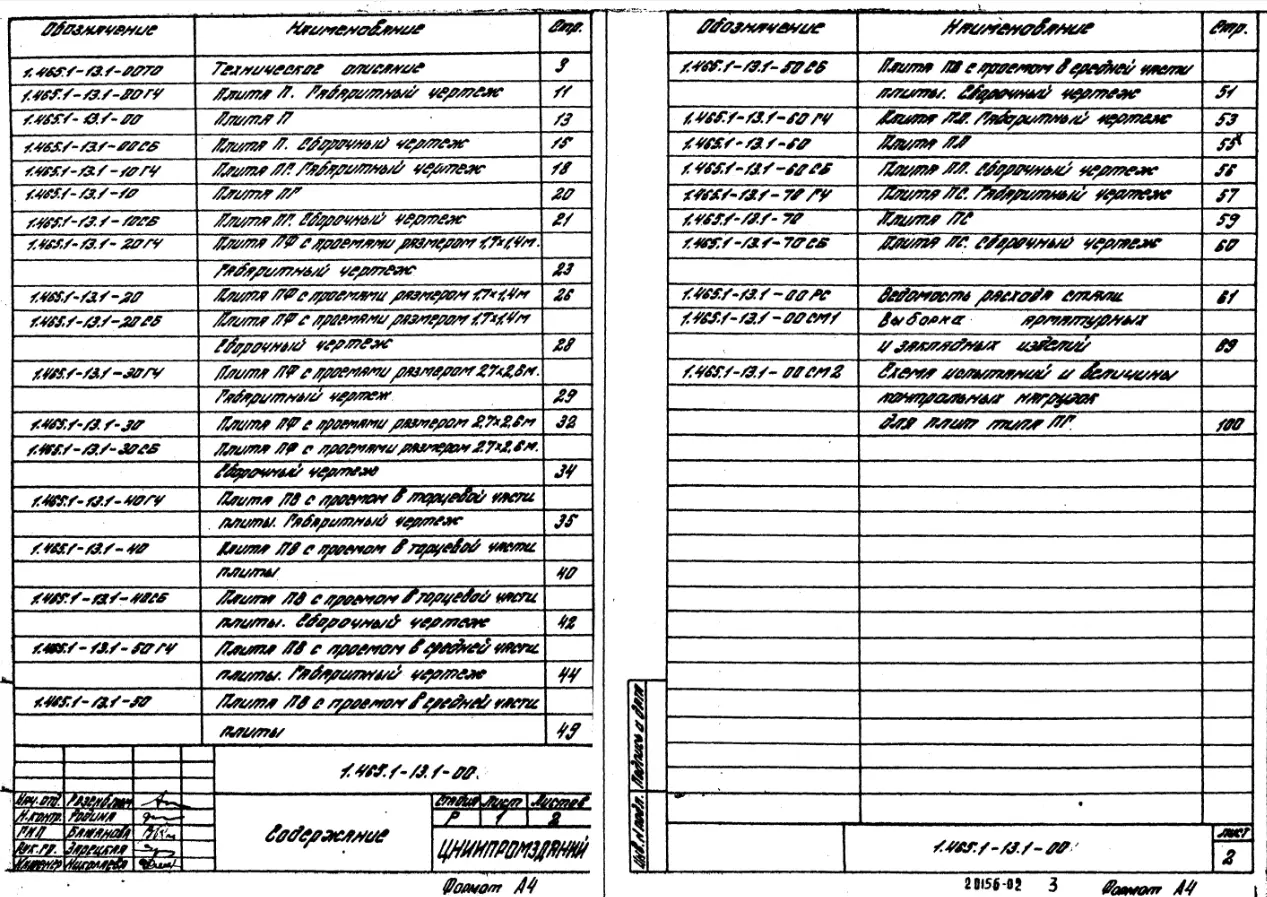 Обозначение Наименование Стр.
1.465.1-13.1-00ТО Техническое описание 9
1.465.1-13.1-00ГЧ Плита П. Габаритный чертеж 11
1.465.1-13.1-00 Плита П 13
1.465.1-13.1-00СБ Плита П. Сборочный чертеж 15
1.465.1-13.1-10ГЧ Плита ПГ. Габаритный чертеж 18
1.465.1-13.1-10 Плита ПГ 20
1.465.1-13.1-10СБ Плита ПГ. Сборочный чертеж 21
1.465.1-13.1-20ГЧ Плита ПФ с проемами размером 1,7×1,4м.
Габаритный чертеж 23
1.465.1-13.1-20 Плита ПФ с проемами размером 1,7×1,4м 26
1.465.1-13.1-20СБ Плита ПФ с проемами размером 1,7×1,4м
Сборочный чертеж 28
1.465.1-13.1-30ГЧ Плита ПФ с проемами размером 2,7×2,6м.
Габаритный чертеж 29
1.465.1-13.1-30 Плита ПФ с проемами размером 2,7×2,6м 32
1.465.1-13.1-30СБ Плита ПФ с проемами размером 2,7×2,6м.
Сборочный чертеж 34
1.465.1-13.1-40ГЧ Плита ПВ с проемом в торцевой части
плиты. Габаритный чертеж 35
1.465.1-13.1-40 Плита ПВ с проемом в торцевой части
плиты 40
1.465.1-13.1-40СБ Плита ПВ с проемом в торцевой части
плиты. Сборочный чертеж 42
1.465.1-13.1-50ГЧ Плита ПВ с проемом в средней части
плиты. Габаритный чертеж 44
1.465.1-13.1-50 Плита ПВ с проемом в средней части
плиты 49
1.465.1-13.1-00.
Нач. отд. Розенблюм
Н.контр. Родина
Г.И.П. Бажанова
Рук.гр. Зарецкая
Инженер Николаева
Содержание
Стадия Лист Листов
Р 1 2
ЦНИИПРОМЗДАНИЙ
Формат А4
Обозначение Наименование Стр.
1.465.1-13.1-50СБ Плита ПВ с проемом в средней части
плиты. Сборочный чертеж 51
1.465.1-13.1-60ГЧ Плита ПЛ. Габаритный чертеж 53
1.465.1-13.1-60 Плита ПЛ 55
1.465.1-13.1-60СБ Плита ПЛ. Сборочный чертеж 56
1.465.1-13.1-70ГЧ Плита ПС. Габаритный чертеж 57
1.465.1-13.1-70 Плита ПС 59
1.465.1-13.1-70СБ Плита ПС. Сборочный чертеж 60
1.465.1-13.1-00РС Ведомость расхода стали 61
1.465.1-13.1-00СМ1 Выборка арматурных
и закладных изделий 89
1.465.1-13.1-00СМ2 Схема испытаний и величины
контрольных нагрузок
для плит типа ПГ. 100
Инв. № подл. Подпись и дата
1.465.1-13.1-00
Лист
2
20156-02 3 Формат А4